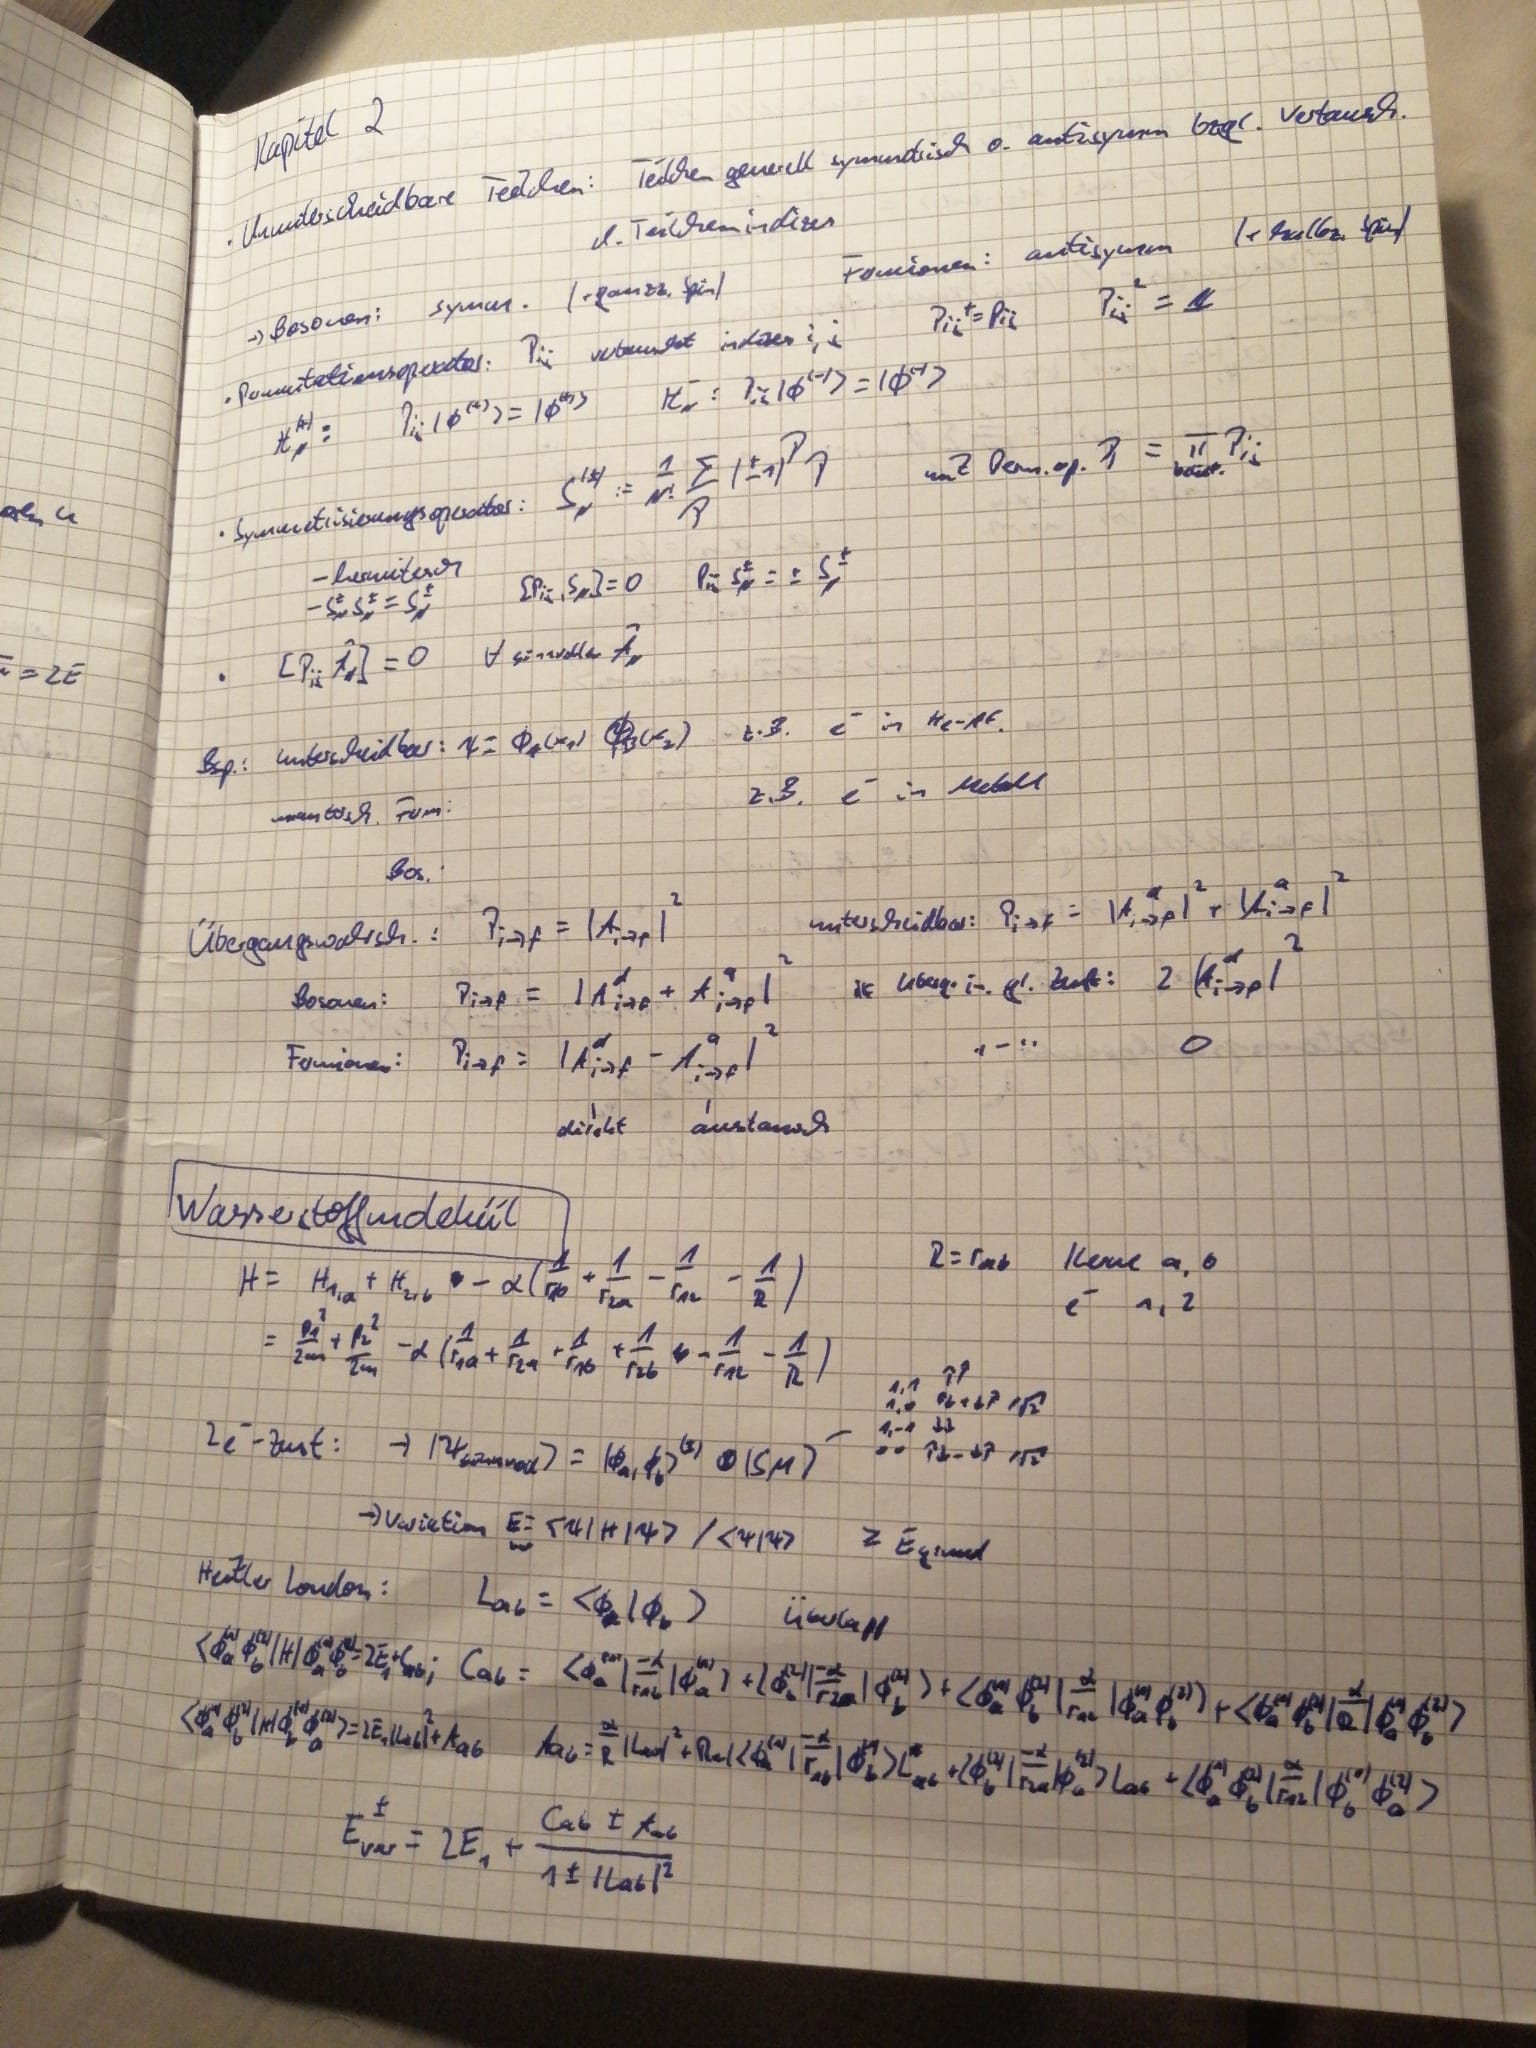 Kapitel 2
· Ununterscheidbare Teilchen: Teilchen generell symmetrisch o. antisymm bzgl. Vertausch.
d. Teilchenindizes
→ Bosonen: symm. (+ganzz. Spin) Fermionen: antisymm (+halbz. Spin)
· Permutationsoperator: P_ij vertauscht indizes i,j P_ij^+ = P_ij P_ij^2 = 1
H_N^(+): P_ij |ϕ^(+)> = |ϕ^(+)> H_N^-: P_ij |ϕ^(-)> = |ϕ^(-)>
· Symmetrisierungsoperator: S_N^(±) := 1/N! Σ_P (±1)^P P mit Perm.op. P = Π P_ij
- hermitesch
- S_N^± S_N^± = S_N^± [P_ij, S_N] = 0 P_ij S_N^± = ± S_N^±
· [P_ij, Â_N] = 0 ∀ sinnvollen Â_N
Bsp.: unterscheidbar: ψ = ϕ_A(x_1) ϕ_B(x_2) z.B. e^- in
Ferm: z.B. e^- in Metall
Bos.:
Übergangswahrsch.: P_i→f = |A_i→f|^2 unterscheidbar: P_i→f = |A^d_i→f|^2 + |A^a_i→f|^2
Bosonen: P_i→f = |A^d_i→f + A^a_i→f|^2 Überg. in. gl. Zust: 2 |A^d_i→f|^2
Fermionen: P_i→f = |A^d_i→f - A^a_i→f|^2 " - " : 0
direkt austausch
Wasserstoffmolekül
H = H_1,a + H_2,b - α (1/r_1b + 1/r_2a - 1/r_12 - 1/R) R = r_ab Kerne a, b
e^- 1, 2
= p_1^2/2m + p_2^2/2m - α (1/r_1a + 1/r_2a + 1/r_1b + 1/r_2b - 1/r_12 - 1/R)
1,1 ↑↑
1,0 ↑↓+↓↑ /√2
1,-1 ↓↓
00 ↑↓-↓↑ /√2
2e^- -Zust: → |ψ> = |ϕ_a, ϕ_b>^(±) ⊗ |SM>
→ Variation E = <ψ|H|ψ> / <ψ|ψ> ≥ E_grund
Heitler London: L_ab = <ϕ_a|ϕ_b> Überlapp
<ϕ_a^(1) ϕ_b^(2)|H|ϕ_a^(1) ϕ_b^(2)> = 2E_1 + C_ab; C_ab = <ϕ_a^(1)|-α/r_1b|ϕ_a^(1)> + <ϕ_b^(2)|-α/r_2a|ϕ_b^(2)> + <ϕ_a^(1) ϕ_b^(2)|α/r_12|ϕ_a^(1) ϕ_b^(2)> + <ϕ_a^(1) ϕ_b^(2)|α/R|ϕ_a^(1) ϕ_b^(2)>
<ϕ_a^(1) ϕ_b^(2)|H|ϕ_b^(1) ϕ_a^(2)> = 2E_1|L_ab|^2 + A_ab A_ab = α/R |L_ab|^2 + Re(<ϕ_a^(1)|-α/r_1b|ϕ_b^(1)> L_ab^* + <ϕ_b^(2)|-α/r_2a|ϕ_a^(2)> L_ab + <ϕ_a^(1) ϕ_b^(2)|α/r_12|ϕ_b^(1) ϕ_a^(2)>
E_var^± = 2E_1 + (C_ab ± A_ab) / (1 ± |L_ab|^2)
= 2E